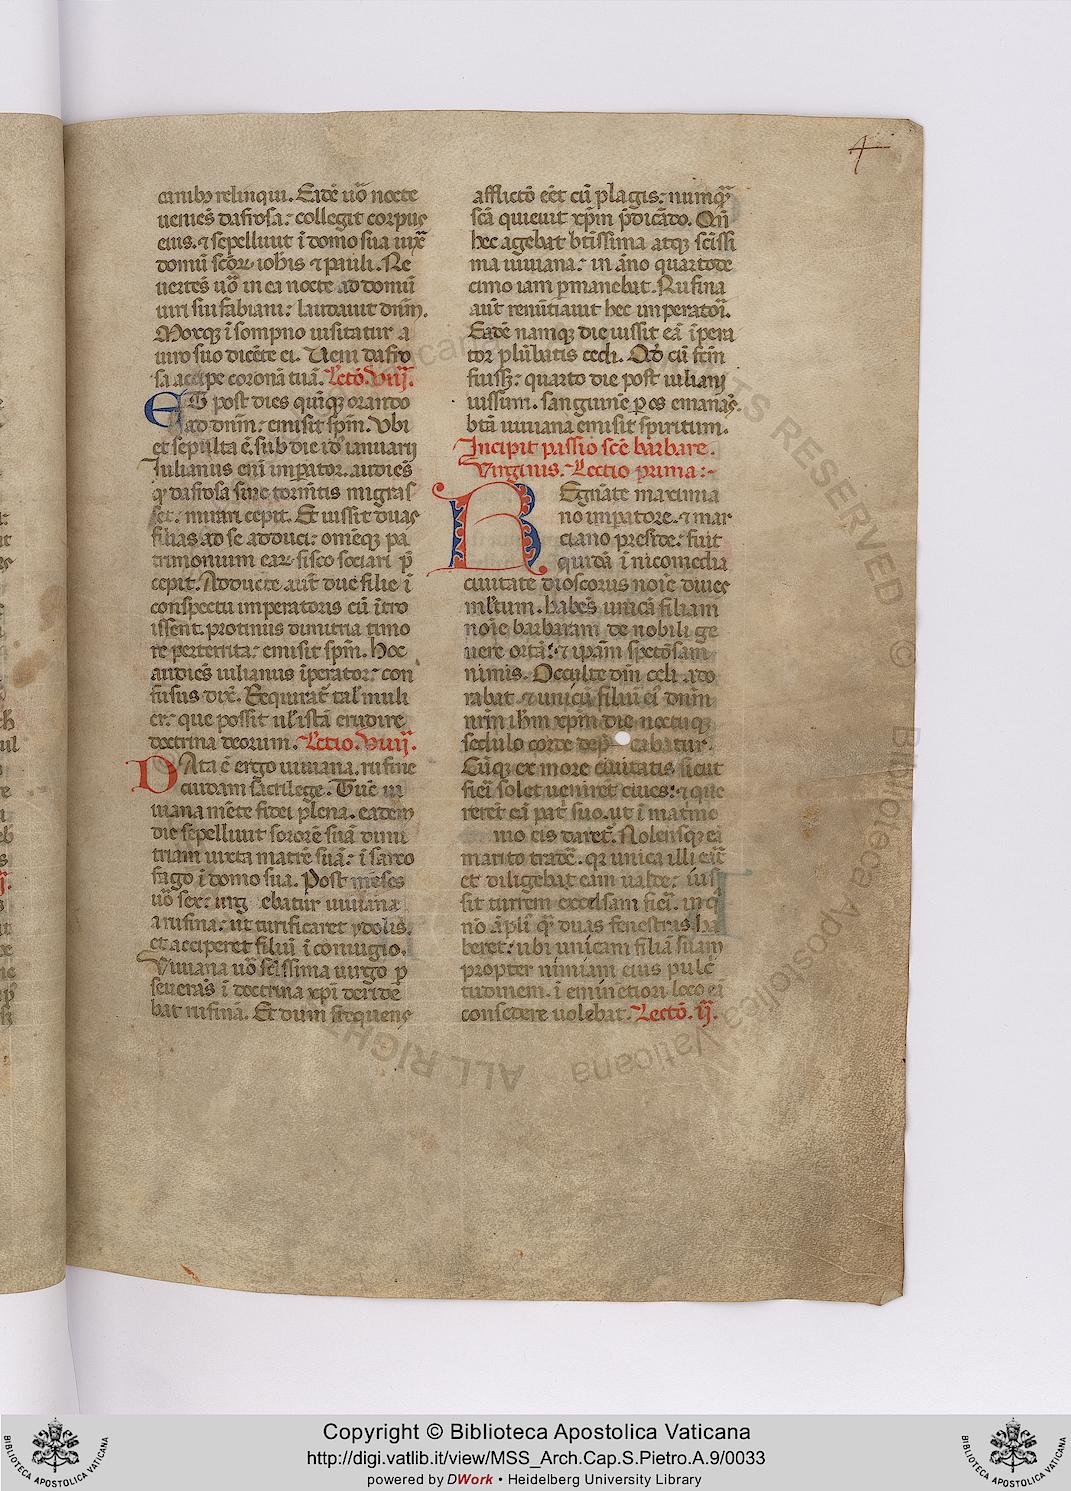 4
canibꝫ relinqui. Eadē ū̄o nocte
ueniēs dafrosa: collegit corpus
eius. ⁊ sepelluut ī domo sua iuxͣ
domū sc̄oꝝ ioh̄is ⁊ pauli. Re
uertēs ū̄o in ea nocte ad domū
uiri sui fabiani: laudauit dn̄m.
Moxqꝫ ī sompno uisitatur a
uiro suo dicēte ei. Ueni dafro
sa accipe coronā tuā. Lectō. viij.
ET post dies quīqꝫ orando
ad dn̄m: emisit sp̄m. Vbi
et sepulta ē. sub die id' ianuarij
Iulianus enī imꝑator. audiēs
qꝫ dafrosa sine tormētis migras
set: mirari cepit. Et iussit duas
filias ad se adduci: omēqꝫ pa
trimonium eaꝝ fisco sociari p̄
cepit. Adducte aut̄ due filie ī
conspectu imperatoris cū ītro
issent. protinus dimitria timo
re perterrita: emisit sp̄m. Hoc
audiēs iulianus īperator: con
fusus dix̄. Requirat̄ tal' muli
er: que possit ul' istā erudire
doctrina deorum. Lectio. viiij.
DAta ē ergo uiuiana. rufine
cuidam sacrilege. Tūc ui
uiana mēte fidei plena. eadem
die sepelluit sororē suā dimi
triam iuxta matrē suā: ī sarco
fago ī domo sua. Post mēses
ū̄o sex: urg ebatur uiuiana
a rufina: ut turificaret ydolis.
et acciperet filiū ī coniugio.
Viuiana ū̄o sc̄issima uirgo ꝑ
seuerās ī doctrina xp̄i deride
bat rufinā. Et dum seqꝫens
afflictō eēt cū plagis: numqͣ
sc̄ā quieuit xp̄m p̄dicādo. Qn̄
hec agebat bt̄issima atqꝫ sc̄issi
ma uiuiana: in āno quartode
cimo iam ꝑmanebat. Rufina
aut̄ renūtiauit hec imperatori.
Eadē namqꝫ die iussit eā īpera
tor plūbatis cedi. Qd' cū fc̄m
fuisꝫ: quarto die post iuliani
iussum. sanguinē ꝑ os emanās.
bt̄ā uiuiana emisit spiritum.
Incipit passio sc̄e barbare.
Virginis. Lectio prima:-
REgnāte maximia
no imꝑatore. ⁊ mar
ciano preside: fuit
quidā ī nicomedia
ciuitate dioscorus noīe diues
ml̄tum. habēs unicā filiam
noīe barbaram de nobili ge
nere ortā: ⁊ ipām spetōsam
nimis. Occulte dn̄m celi ado
rabat. ⁊ unicū filiū ei' dn̄m
nr̄m ih̄m xp̄m die noctuqꝫ
sedulo corde dep̄ cabatur.
Cūqꝫ ex more ciuitatis sicut
fieri solet uenirēt ciues: ⁊ que
rerēt eā patͥ suo. ut ī matrīo
nio eis daret̄. Nolensqꝫ eā
marito tradē. qꝛ unica illi erat̄
et diligebat eam ualde: ius
sit turrem excelsam fieri. in qͣ
nō āpliꝰ qͣ duas fenestras ha
beret: ubi unicam filiā suam
propter nimiam eius pulcͥ
tudinem. ī eminētiori loco eā
consedere uolebat. Lectō. ij.
Copyright © Biblioteca Apostolica Vaticana
http://digi.vatlib.it/view/MSS_Arch.Cap.S.Pietro.A.9/0033
powered by DWork • Heidelberg University Library